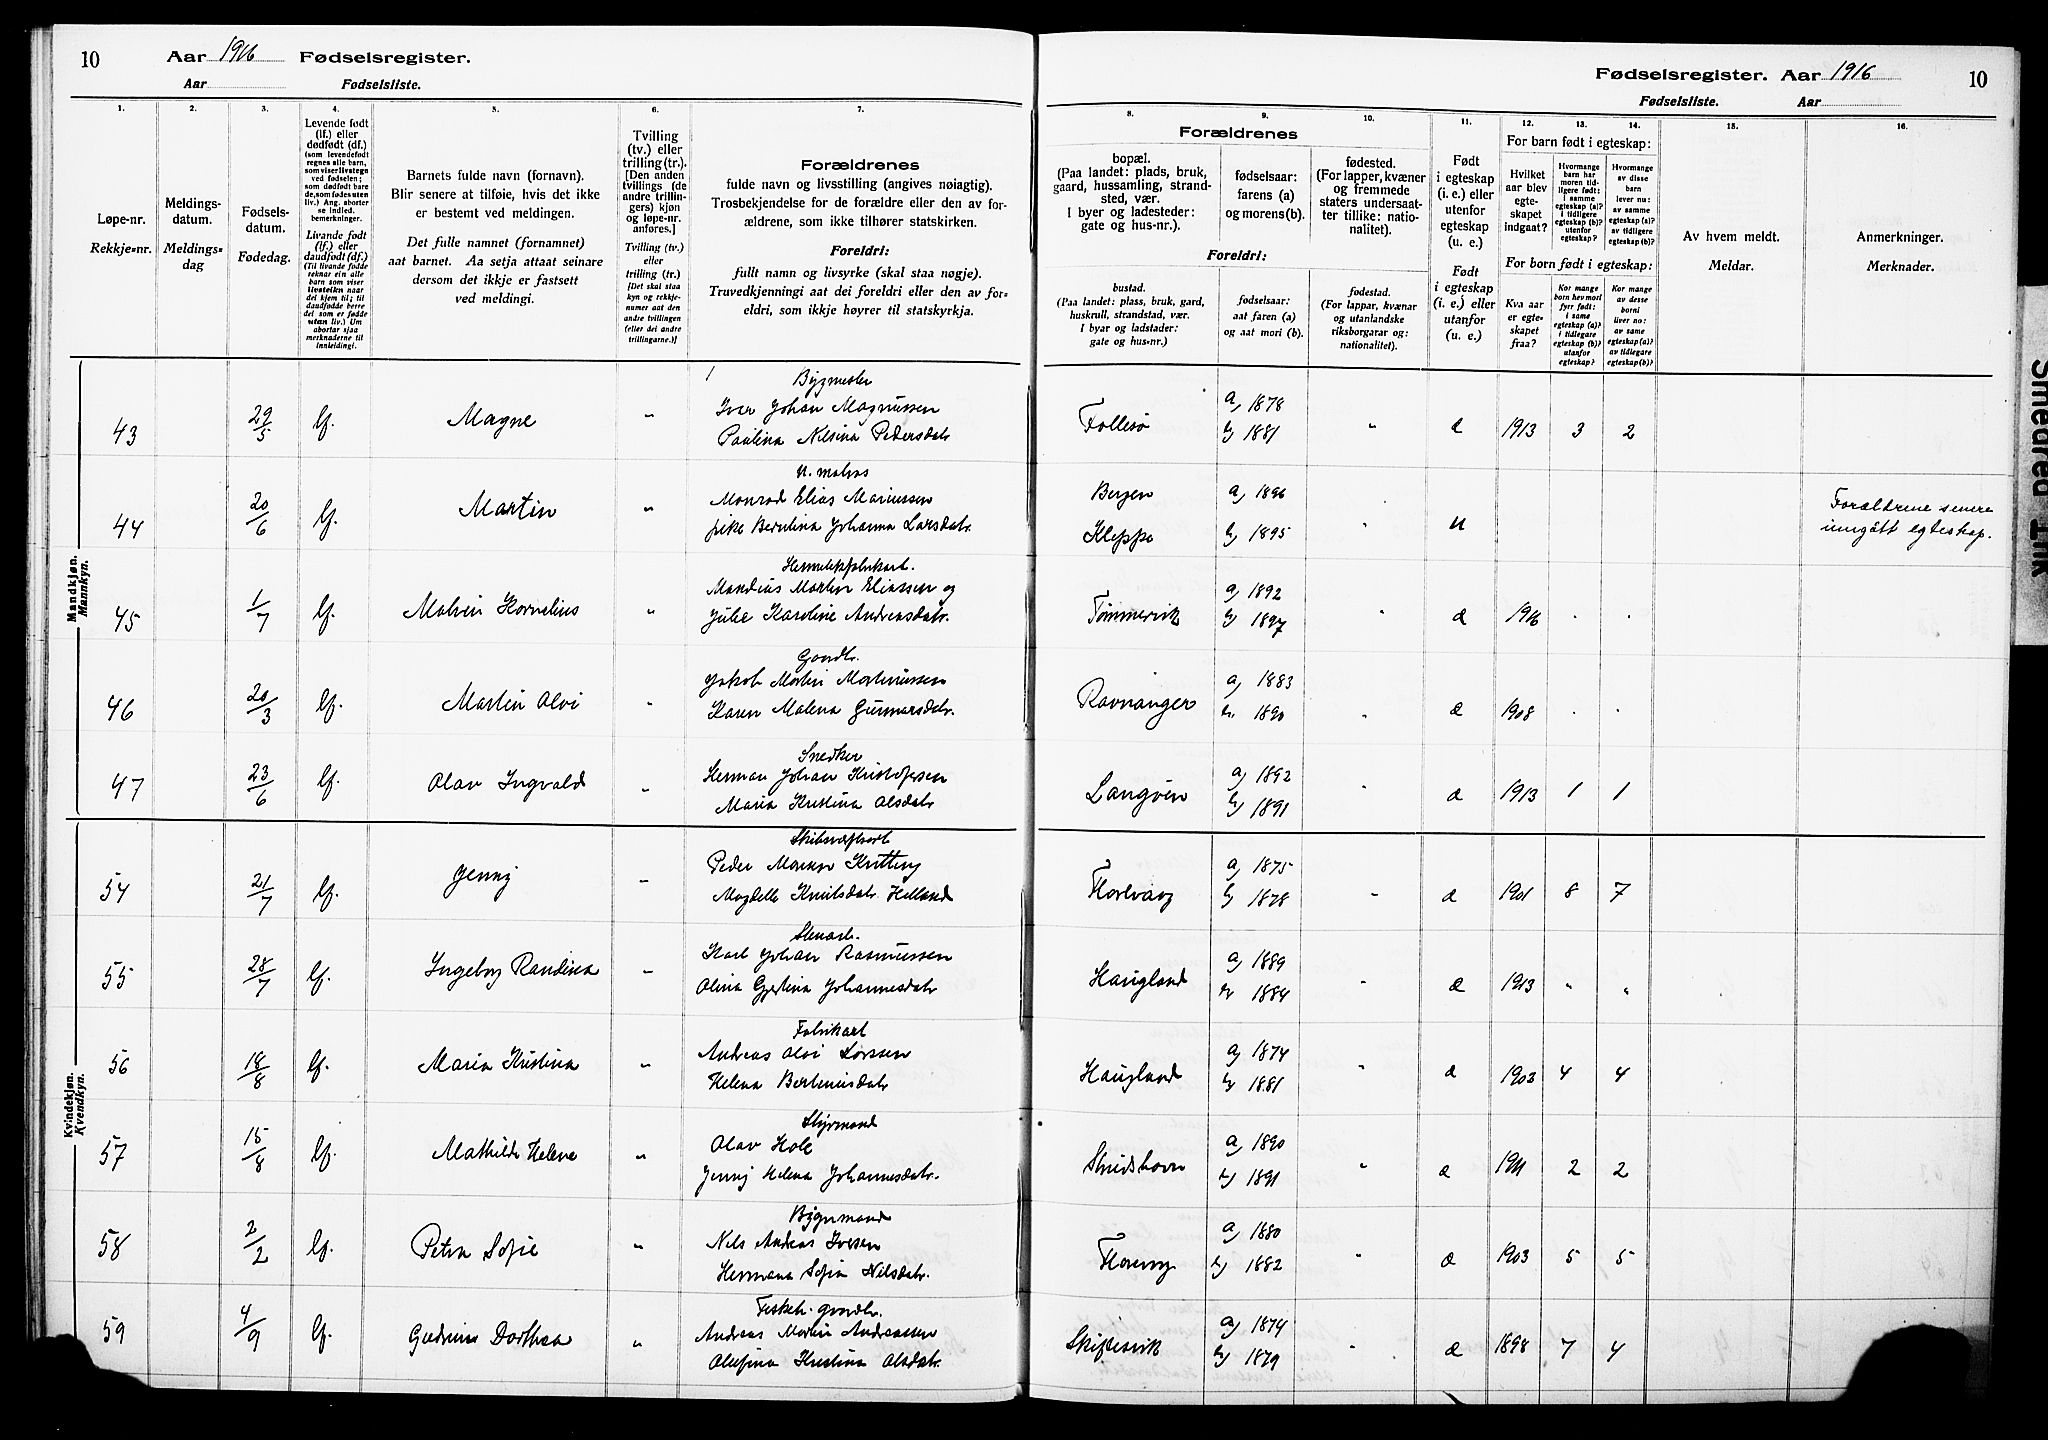 10
Aar 1916 Fødselsregister.
Aar Fødselsliste.
1. 2. 3. 4. 5. 6. 7.
Løpe-nr.
Rekkje-nr.
Meldings-
datum.
Meldings-
dag
Fødsels-
datum.
Fødedag.
Levende født
(lf.) eller
dødfødt (df.)
(som levendefødt
regnes alle barn,
som viser livstegn
ved fødselen;
som dødfødt bare
de, som fødes uten
liv.) Ang. aborter
se indled.
bemerkninger.
Livande født
(lf.) eller
daudfødt (df.)
(Til livande fødde
reknar ein alle
born som viser
livsteikn naar
dei kjem til; til
daudfødde berre
dei som er fødde
utan liv.) Um
abortar sjaa
merknaderne til
innleiding!
Barnets fulde navn (fornavn).
Blir senere at tilføie, hvis det ikke
er bestemt ved meldingen.
Det fulle namnet (fornamnet)
aat barnet. Aa setja attaat seinare
dersom det ikkje er fastsett
ved meldingi.
Tvilling
(tv.) eller
trilling (tr.).
[Den anden
tvillings (de
andre trillin-
gers) kjøn
og løpe-nr.
anføres.]
Tvilling (tv.)
eller
trilling (tr.)
[Det skal staa
kyn og rekkje-
numer aat den
andre tvillingen
(eller dei andre
trillingarne.)]
Forældrenes
fulde navn og livsstilling (angives nøiagtig).
Trosbekjendelse for de forældre eller den av for-
ældrene, som ikke tilhører statskirken.
Foreldri:
fullt namn og livsyrke (skal staa nøgje).
Truvedkjenningi aat dei foreldri eller den av for-
eldri, som ikkje høyrer til statskyrkja.
Mandkjøn.
Mannkyn.
43 29/5 lf. Magne " Bygmester
Iver Johan Magnussen
Paulina Nilsina Pedersdatr
44 20/6 lf. Martin " U. matros
Monrad Elias Mariussen
pike Berntina Johanna Larsdatr.
45 1/7 lf. Malvin Kornelius " Hermetikfabrikarb.
Mandius Martin Eliassen og
Julie Karoline Andreasdatr.
46 20/3 lf. Martin Alvi " Gaardbr.
Jakob Martin Martinussen
Karen Malena Gunnarsdatr.
47 23/6 lf. Olav Ingvald " Snedker
Herman Johan Kristofersen
Maria Kristina Olsdatr
Kvindekjøn.
Kvendkyn.
54 21/7 lf. Jenny "
Peder
Magdele Knutsdatr. Helland
55 28/7 lf. Ingeborg Randina " Stenarb.
Karl Johan Rasmussen
Olina Gjertina Johannesdatr
56 18/8 lf. Maria Kristina " Fabrikarb
Andreas Olvi Larssen
Helena Bertinusdatr
57 15/8 lf. Mathilde Helene " Styrmand
Olav Hole
Jenny Helena Johannesdatr.
58 2/2 lf. Petra Sofie "
Nils Andreas Iversen
Hermana Sofia Nilsdatr.
59 4/9 lf. Gudrun Dorthea " Fisker gaardbr.
Andreas Martin Andreassen
Olufina Kristina Olsdatr.
Fødselsregister. Aar 1916 10
Fødselsliste. Aar
8. 9. 10. 11. 12. 13. 14. 15. 16.
Forældrenes
bopæl.
(Paa landet: plads, bruk,
gaard, hussamling, strand-
sted, vær.
I byer og ladesteder:
gate og hus-nr.).
fødselsaar:
farens (a)
og morens (b).
fødested.
(For lapper, kvæner
og fremmede
staters undersaat-
ter tillike: natio-
nalitet).
Foreldri:
bustad.
(Paa landet: plass, bruk, gard,
huskrull, strandstad, vær.
I byar og ladstader:
gate og hus-nr.)
fødselsaar:
aat faren (a)
og aat mori (b).
fødestad.
(For lappar, kvænar
og utanlandske
riksborgarar og:
nationalitet).
Født
i egteskap
(i. e.) eller
utenfor
egteskap
(u. e.)
Født
i egteskap
(i. e.) eller
utanfor
(u. e.)
For barn født i egteskap:
Hvilket
aar blev
egte-
skapet
indgaat?
Hvormange
barn har
moren tid-
ligere født:
i samme
egteskap (a)?
i tidligere
egteskap (b)?
utenfor
egteskap?
Hvormange
av disse
barn
lever nu:
av samme
egteskap (a)?
av tidligere
egteskap (b)?
For born født i egteskap:
Kva aar
er egte-
skapet
fraa?
Kor mange
born hev mori
fyrr født:
i same
egteskap (a)?
i tidlegare
egteskap (b)?
utanfor
egteskap?
Kor mange
av desse
borni
liver no:
av same
egteskap (a)?
av tidlegare
egteskap (b)?
Av hvem meldt.
Meldar.
Anmerkninger.
Merknader.
Follesø a) 1878
b) 1881 " æ 1913 3 2
Bergen a) 1896
Kleppe b) 1895 " u Forældrene senere
inngått egteskap.
Tømmervik a) 1892
b) 1897 " æ 1916 . .
Ravnanger a) 1883
b) 1890 " æ 1908 . .
Langøen a) 1892
b) 1891 " æ 1913 1 1
Florvaag a) 1875
b) 1878 " æ 1901 8 7
Haugland a) 1889
b) 1884 æ 1913 " "
Haugland a) 1874
b) 1881 " æ 1903 4 4
Strudshavn a) 1890
b) 1891 " æ 1911 2 2
a) 1880
b) 1882 " æ 1903 5 5
Skiftesvik a) 1874
b) 1879 " æ 1898 7 4
Smedred Ink